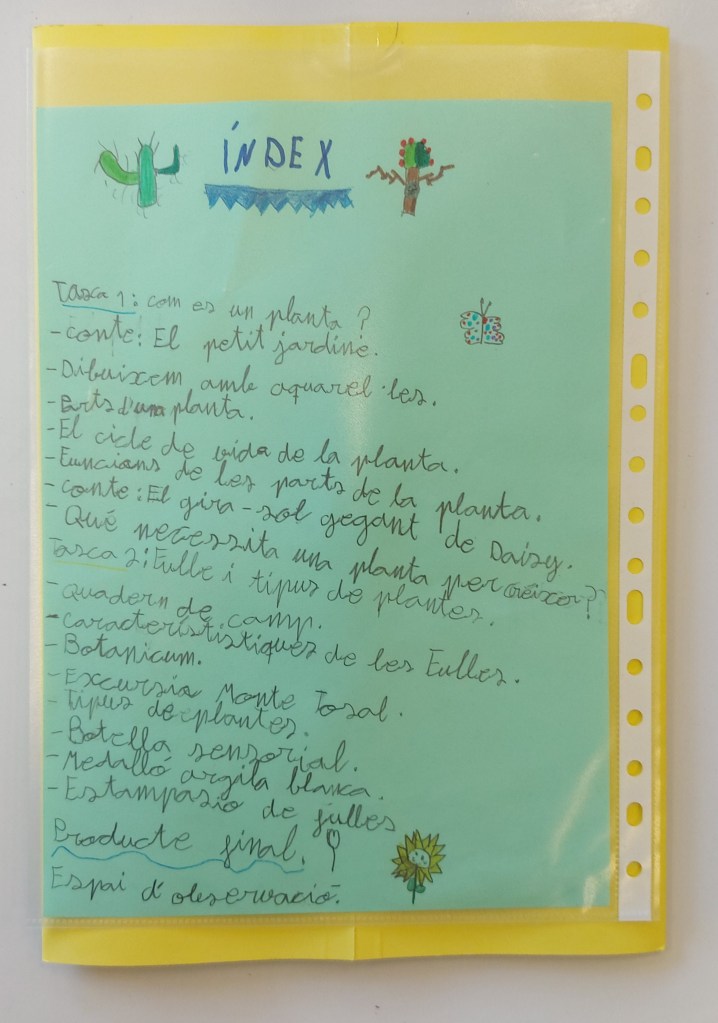 ÍNDEX
Tasca 1: com es un planta?
-conte: El petit jardiné.
-Dibuixem amb aquarel·les.
-Parts d'una planta.
-El cicle de vida de la planta.
-Funcions de les parts de la planta.
-conte: El gira-sol gegant de Daisy.
-Qué necessita una planta per créixer?
Tasca 2: Fulle i tipus de plantes.
-Quadern de camp.
-Característistiques de les Fulles.
-Botanicum.
-Excursia Monte Tosal.
-Tipus de plantes.
-Botella sensorial.
-Medalló argila blanca.
-Estampasio de fulles
Producte final.
Espai d'observació.